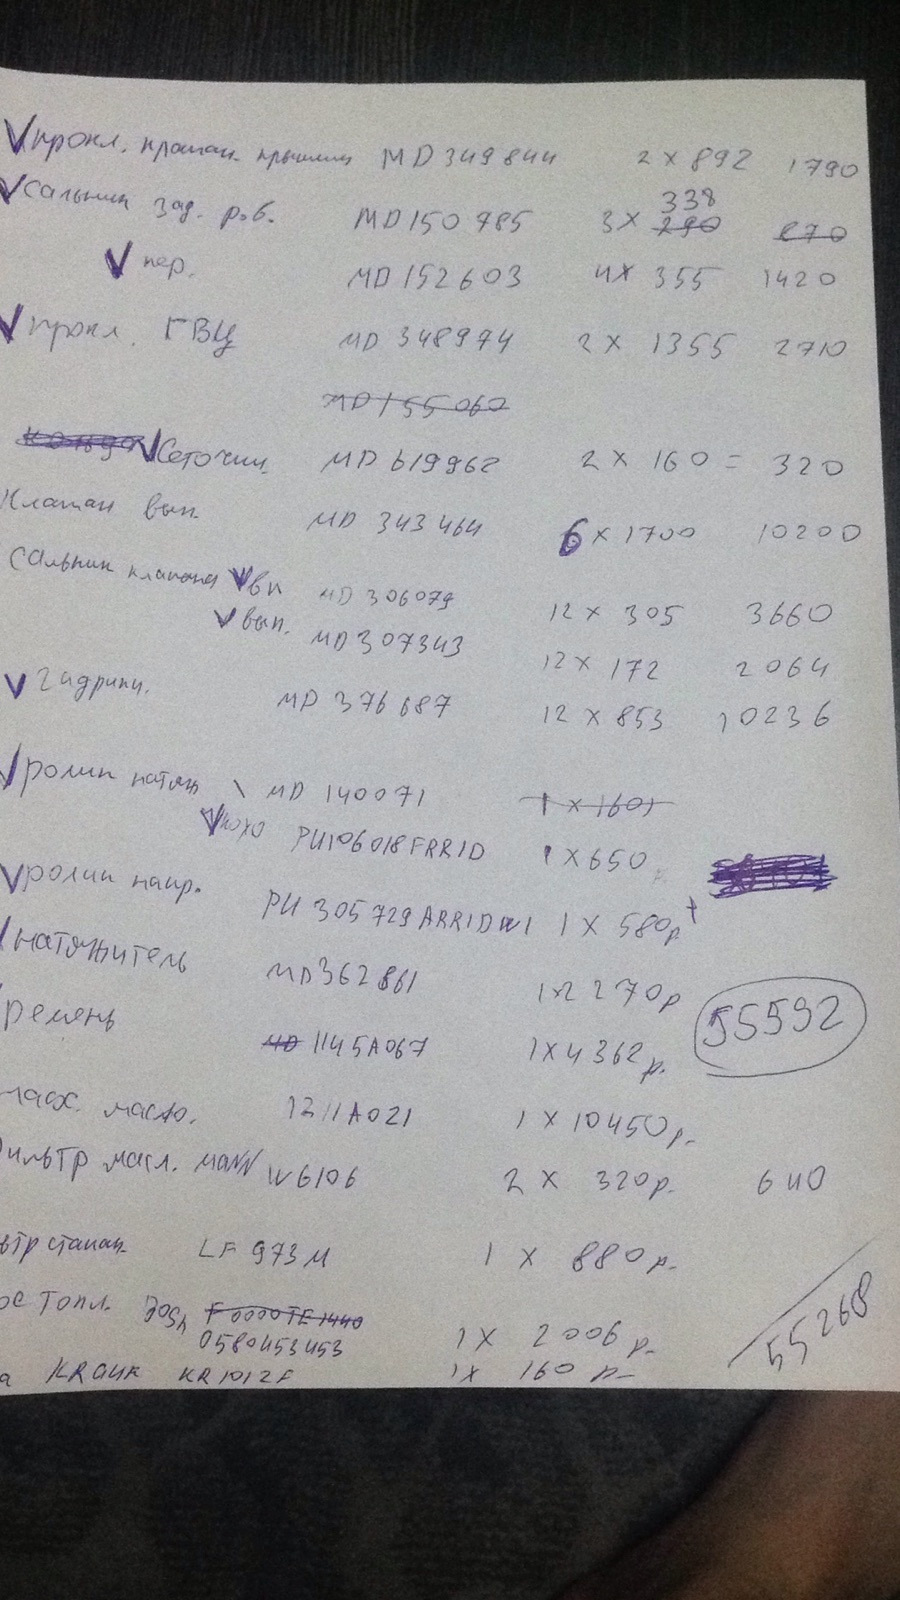 прокл. клапан. крышки MD349844 2 x 892 1790
338
сальник зад. р.в. MD150785 3 x 290 870
пер. MD152603 4x 355 1420
прокл. ГБЦ MD 348974 2 x 1355 2710
MD155060
кольцо Сеточки. MD619962 2 x 160 = 320
клапан вып. MD 343464 6 x 1700 10200
сальник клапана вп MD306079 12 x 305 3660
вып. MD307343 12 x 172 2064
гидрики. MD 376687 12 x 853 10236
ролик натяж MD 140071 1 x 1601
КОУО PU106018FRR1D 1 x 650
ролик напр. PU305729ARR1DW1 1 x 580р
натяжитель MD362861 1x2270р
ремень MD 1145A067 1x4362р.
55592
масл. насо. 1211A021 1 x 10450р.
ильтр масл. MANN W6106 2 x 320р. 640
втр стакан. LF 973M 1 x 880р.
ос топл. Bosh F0000TE1440
0580453453 1x 2006р.
а KRAUF KR1012F 1x 160р-
55268